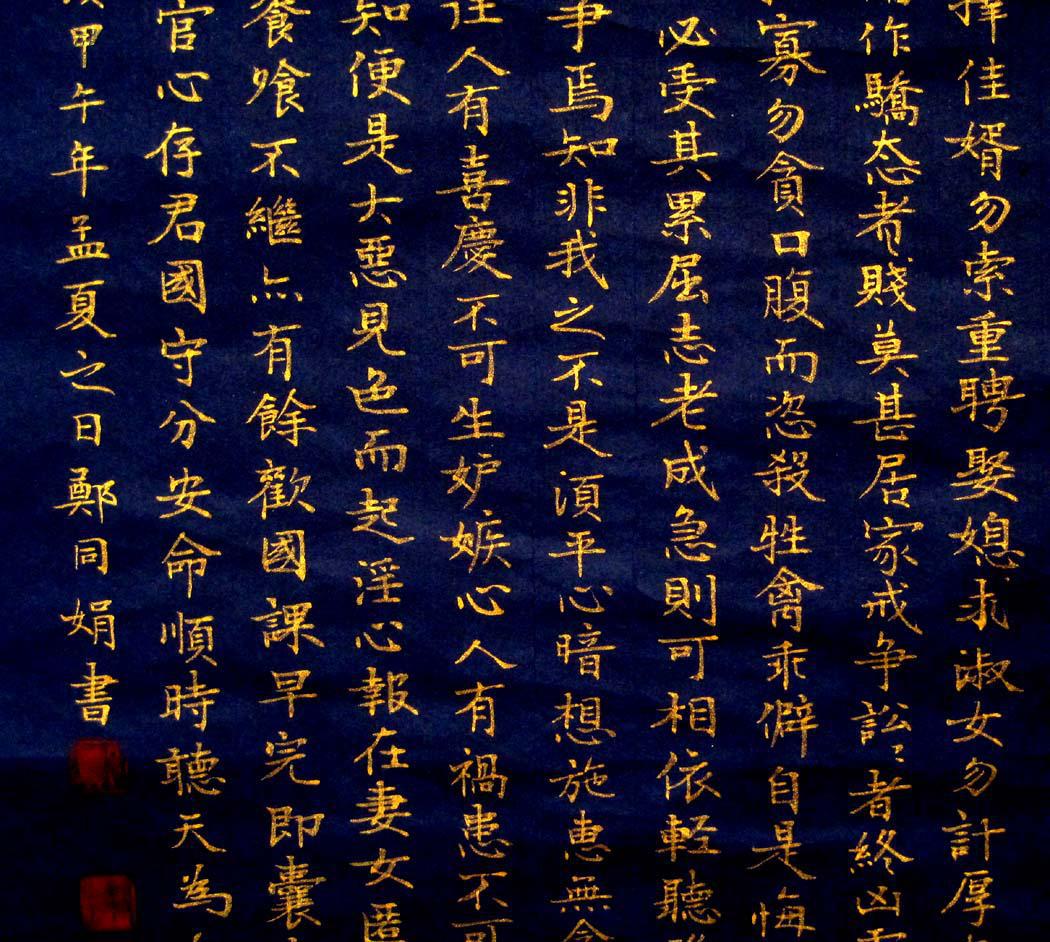 擇佳婿勿索重聘娶媳求淑女勿計厚
作驕态者賤莫甚居家戒争訟〻者終凶
寡勿貪口腹而恣殺牲禽乖僻自是悔
必受其累屈志老成急則可相依輕聽
爭焉知非我之不是須平心暗想施恵無念
往人有喜慶不可生妒嫉心人有禍患不可
知便是大惡見色而起淫心報在妻女匿
喰不繼亦有餘歡國課早完即囊
官心存君國守分安命順時聽天為
甲午年孟夏之日鄭同娟書